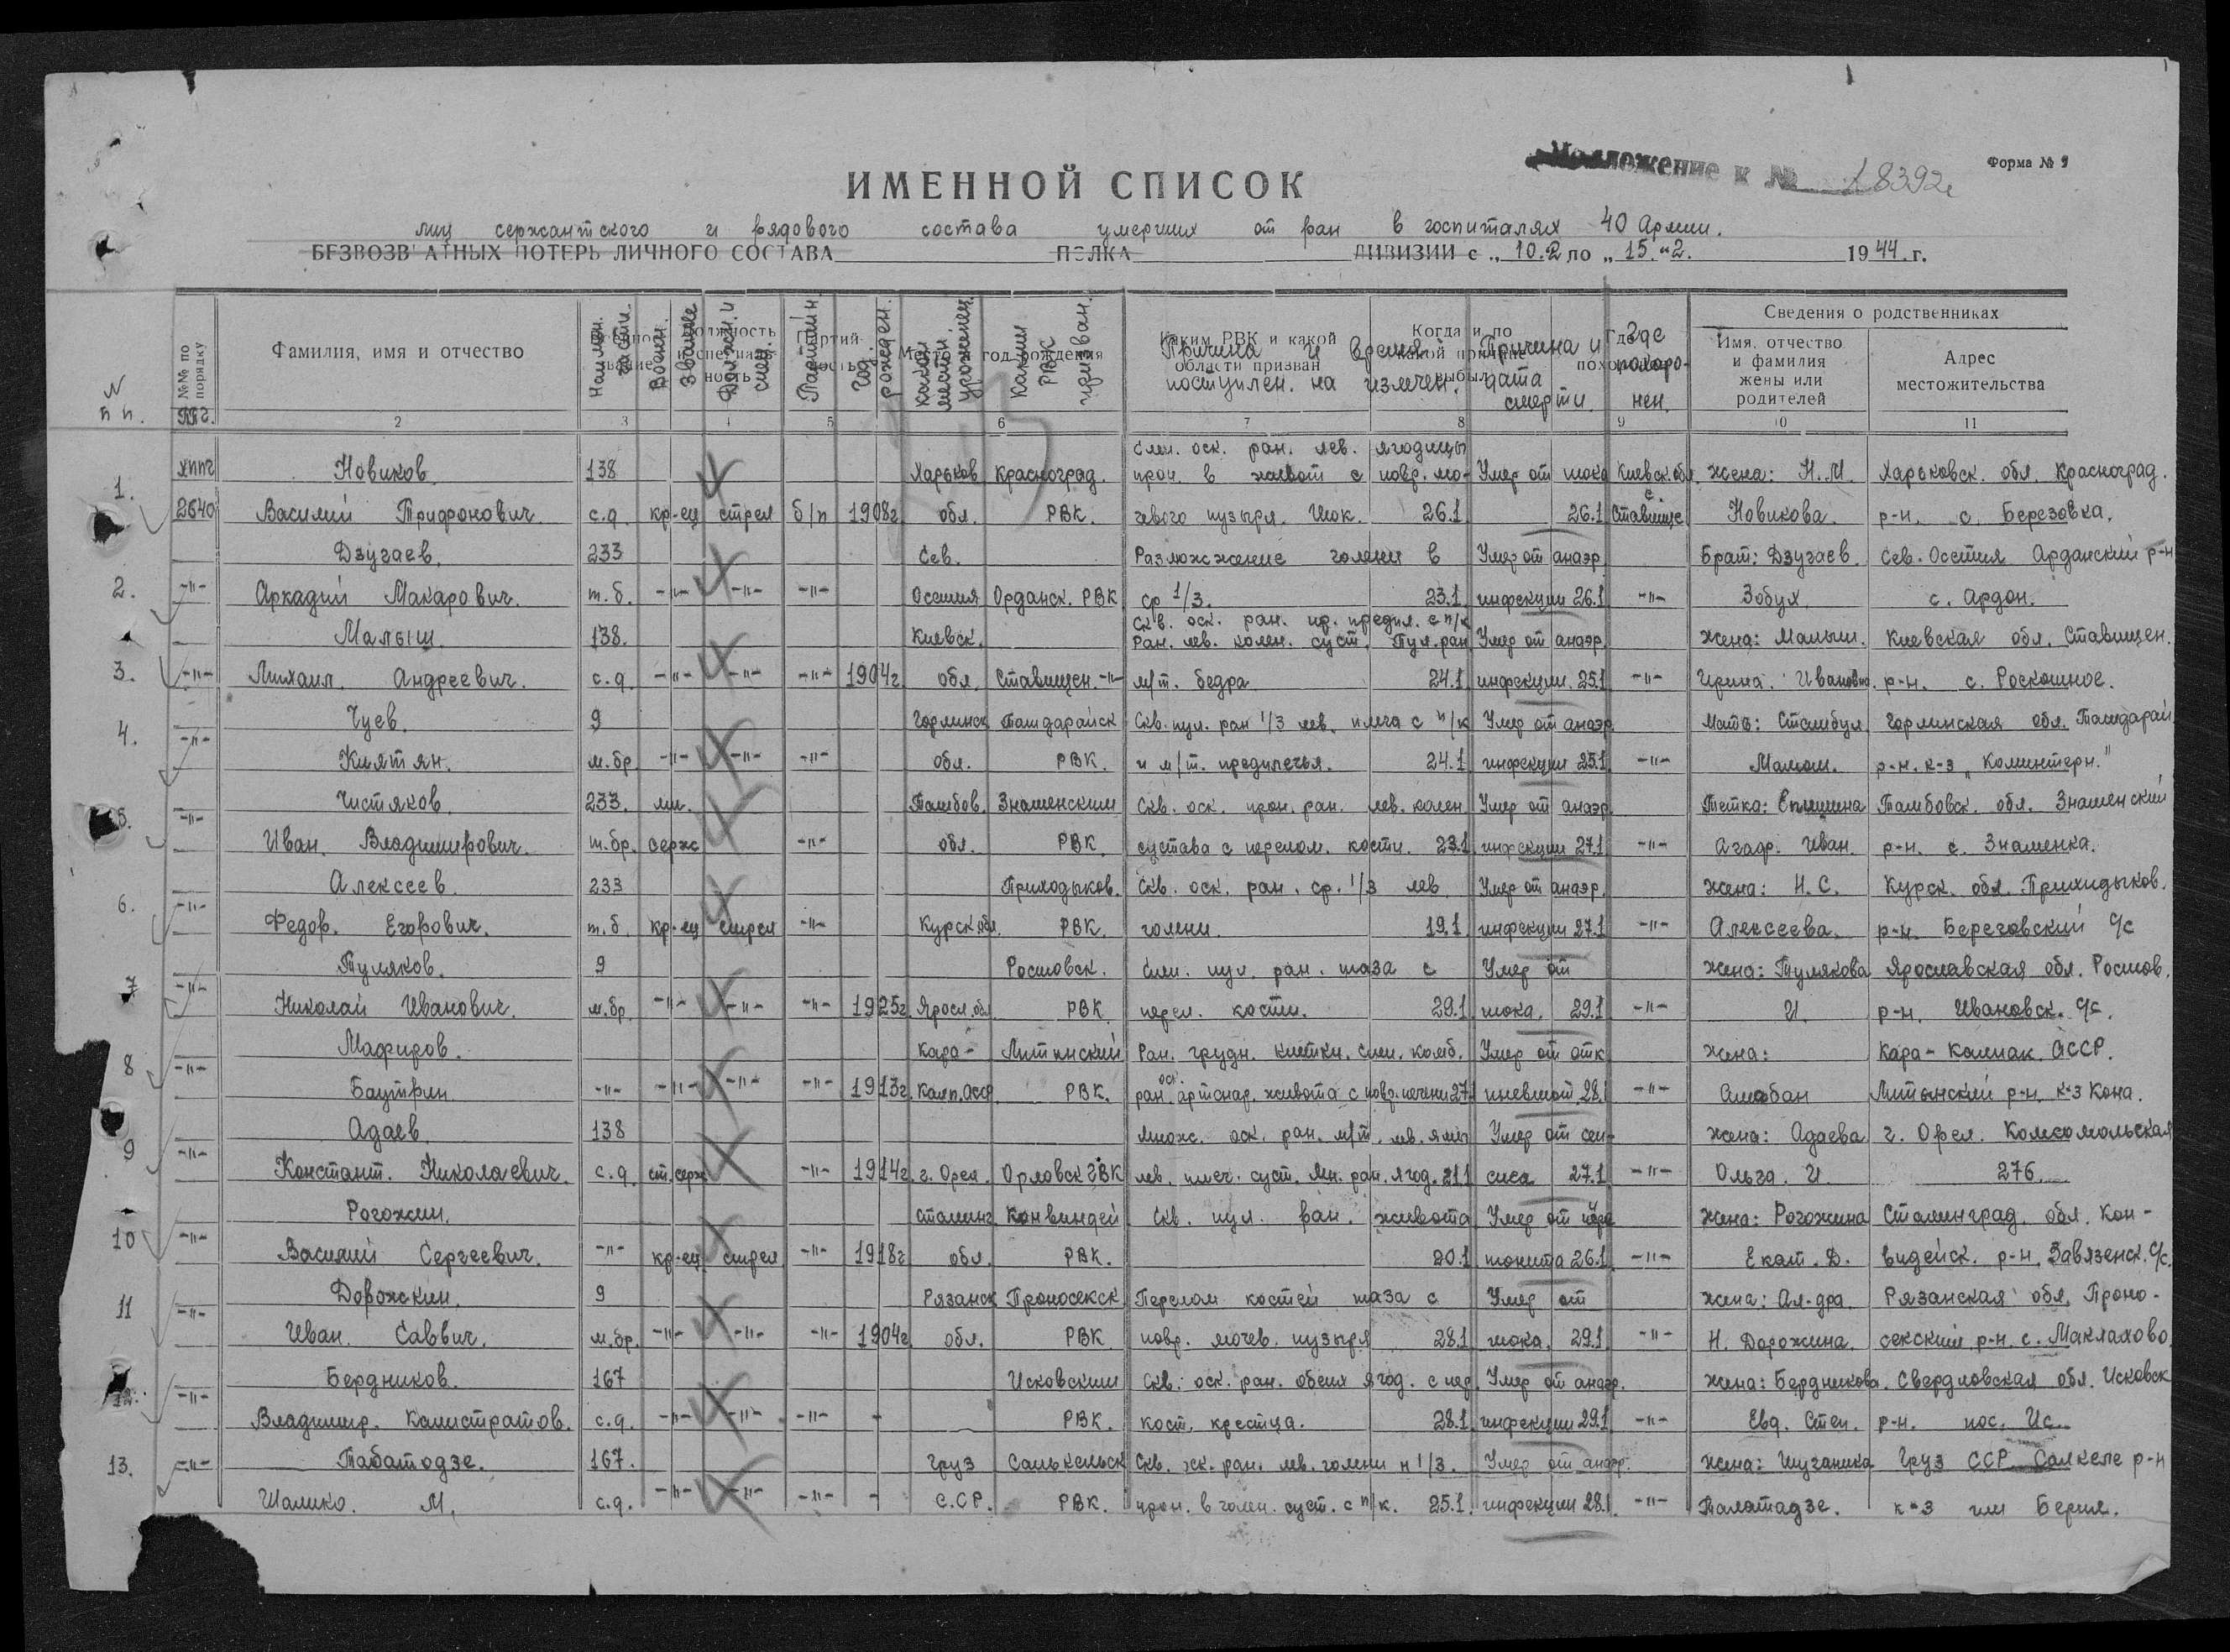 Приложение к № 18392с
Форма № 9
ИМЕННОЙ СПИСОК
лиц сержантского и рядового состава умерших от ран в госпиталях 40 Армии.
БЕЗВОЗВРАТНЫХ ПОТЕРЬ ЛИЧНОГО СОСТАВА ПОЛКА ДИВИЗИИ с „ 10.2 по „ 15."2. 1944. г.
N п п. №№ по порядку Фамилия, имя и отчество Наимен. части. Воен. звание Должн. и спец. Партийн. Год рожден. Какой местн. уроженец. Каким РВК призван. Причина и время поступлен. на излечен. Причина и дата смерти. Где похоронен. Сведения о родственниках
Имя, отчество и фамилия жены или родителей Адрес местожительства
2 3 4 5 6 7 8 9 10 11
1. хппг Новиков 138 Харьков Красноград. Слеп. оск. ран. лев. ягодицы прон. в живот с повр. мо- Умер от шока Киевск. обл. Жена: Н.М. Харьковск. обл. Красноград.
2640 Василий Трифонович. с.д. кр-ец стрел б/п 1908г обл. РВК. чевого пузыря. Шок. 26.1 26.1 с. Ставище Новикова. р-н. с. Березовка.
2. Дзугаев. 233 Сев. Размозжение голени в Умер от анаэр. Брат: Дзугаев. Сев. Осетия Арданский р-н
-"- Аркадий Макарович. т.б. -"- -"- -"- Осетия Орданск. РВК ср 1/3. 23.1 инфекции 26.1 -"- Зобул. с. Ардон.
3. Малыш. 138. Киевск. Скв. оск. ран. пр. предпл. с п/к Ран. лев. колен. суст. Пул. ран Умер от анаэр. Жена: Малыш. Киевская обл. Ставищен.
-"- Михаил. Андреевич. с.д. -"- -"- -"- 1904г. обл. Ставищен. -"- м/т. бедра 24.1 инфекции. 25.1 -"- Ирина. Ивановна. р-н. с. Роскошное.
4. Чуев. 9 Горлинск Ташдарайск Скв. пул. ран 1/3 лев. плеча с п/к Умер от анаэр. Мать: Стамбул. Горлинская обл. Ташдарай
-"- Киятян. м.бр. -"- -"- -"- обл. РВК. и м/т. предплечья. 24.1 инфекции 25.1 -"- Мамам. р-н. к-з „Коминтерн."
5. Чистяков. 233. мл. Тамбов. Знаменским Скв. оск. прон. ран. лев. колен Умер от анаэр. Тетка: Епишина Тамбовск. обл. Знаменский
-"- Иван. Владимирович. т.бр. серж -"- обл. РВК. сустава с перелом. кости. 23.1 инфекции 27.1 -"- Агафр. Иван. р-н. с. Знаменка.
6. Алексеев. 233 Приходьков. Скв. оск. ран. ср. 1/3 лев Умер от анаэр. Жена: Н.С. Курск. обл. Прихидьков.
-"- Федор. Егорович. т.б. кр-ец стрел -"- Курск обл. РВК. голени. 19.1 инфекции 27.1 -"- Алексеева. р-н. Береговский с/с
7 Туляков. 9 Ростовск. Слеп. пул. ран. таза с Умер от Жена: Тулякова Ярославская обл. Ростов.
-"- Николай Иванович. м.бр. -"- -"- -"- 1925г. Яросл. обл. РВК перел. кости. 29.1 шока. 29.1 -"- И. р-н. Ивановск. с/с.
8 Мафиров. Кара- Литинский Ран. грудн. клетки. Слеп. комб. Умер от отк Жена: Кара-Калпак. АССР.
-"- Баутрин -"- -"- -"- -"- 1913г. Калп. АССР. РВК. оск. ран. арт. снар. живота с повр. печени 27.1 пневмот. 28.1 -"- Амабан Литинский р-н. к-з Кона.
9 Адаев. 138 Множ. оск. ран. м/т. лев. Умер от сеп- Жена: Адаева г. Орел. Комсомольская
-"- Констант. Николаевич. с.д. ст. серж -"- 1914г. г. Орел. Орловск ГВК лев. плеч. суст. Мн. ран. ягод. 21.1 сиса 27.1 -"- Ольга. И. 276.
10 Рогожин. Сталинг. Конвиндей Скв. пул. ран. живота Умер от пери Жена: Рогожина Сталинград. обл. Кон-
-"- Василий Сергеевич. -"- кр-ец стрел -"- 1918г обл. РВК. 20.1 тонита 26.1 -"- Екат. Д. видейск. р-н. Завязенск. с/с.
11 Дорожкин. 9 Рязанск Проносекск Перелом костей таза с Умер от Жена: Ал-дра. Рязанская обл. Проно-
-"- Иван. Саввич. м.бр. -"- -"- -"- 1904г. обл. РВК повр. мочев. пузыря 28.1 шока. 29.1 -"- Н. Дорожкина. секский р-н. с. Маклахово.
12. Бердников. 167 Исковским Скв. оск. ран. обеих ягод. с пер. Умер от анаэр. Жена: Бердникова. Свердловская обл. Исковск
-"- Владимир. Калистратов. с.д. -"- -"- -"- - РВК. кост. крестца. 28.1 инфекции 29.1 -"- Евд. Степ. р-н. пос. Ис.
13. Табатадзе. 167. Груз Салькельск Скв. оск. ран. лев. голени н 1/3. Умер от анаэр. Жена: Шуганика Груз ССР Салкеле р-н
-"- Шалико. М. с.д. -"- -"- -"- - С.СР. РВК. прон. в голен. суст. с п/к. 25.1. инфекции 28.1 -"- Талатадзе. к-з им Берия.